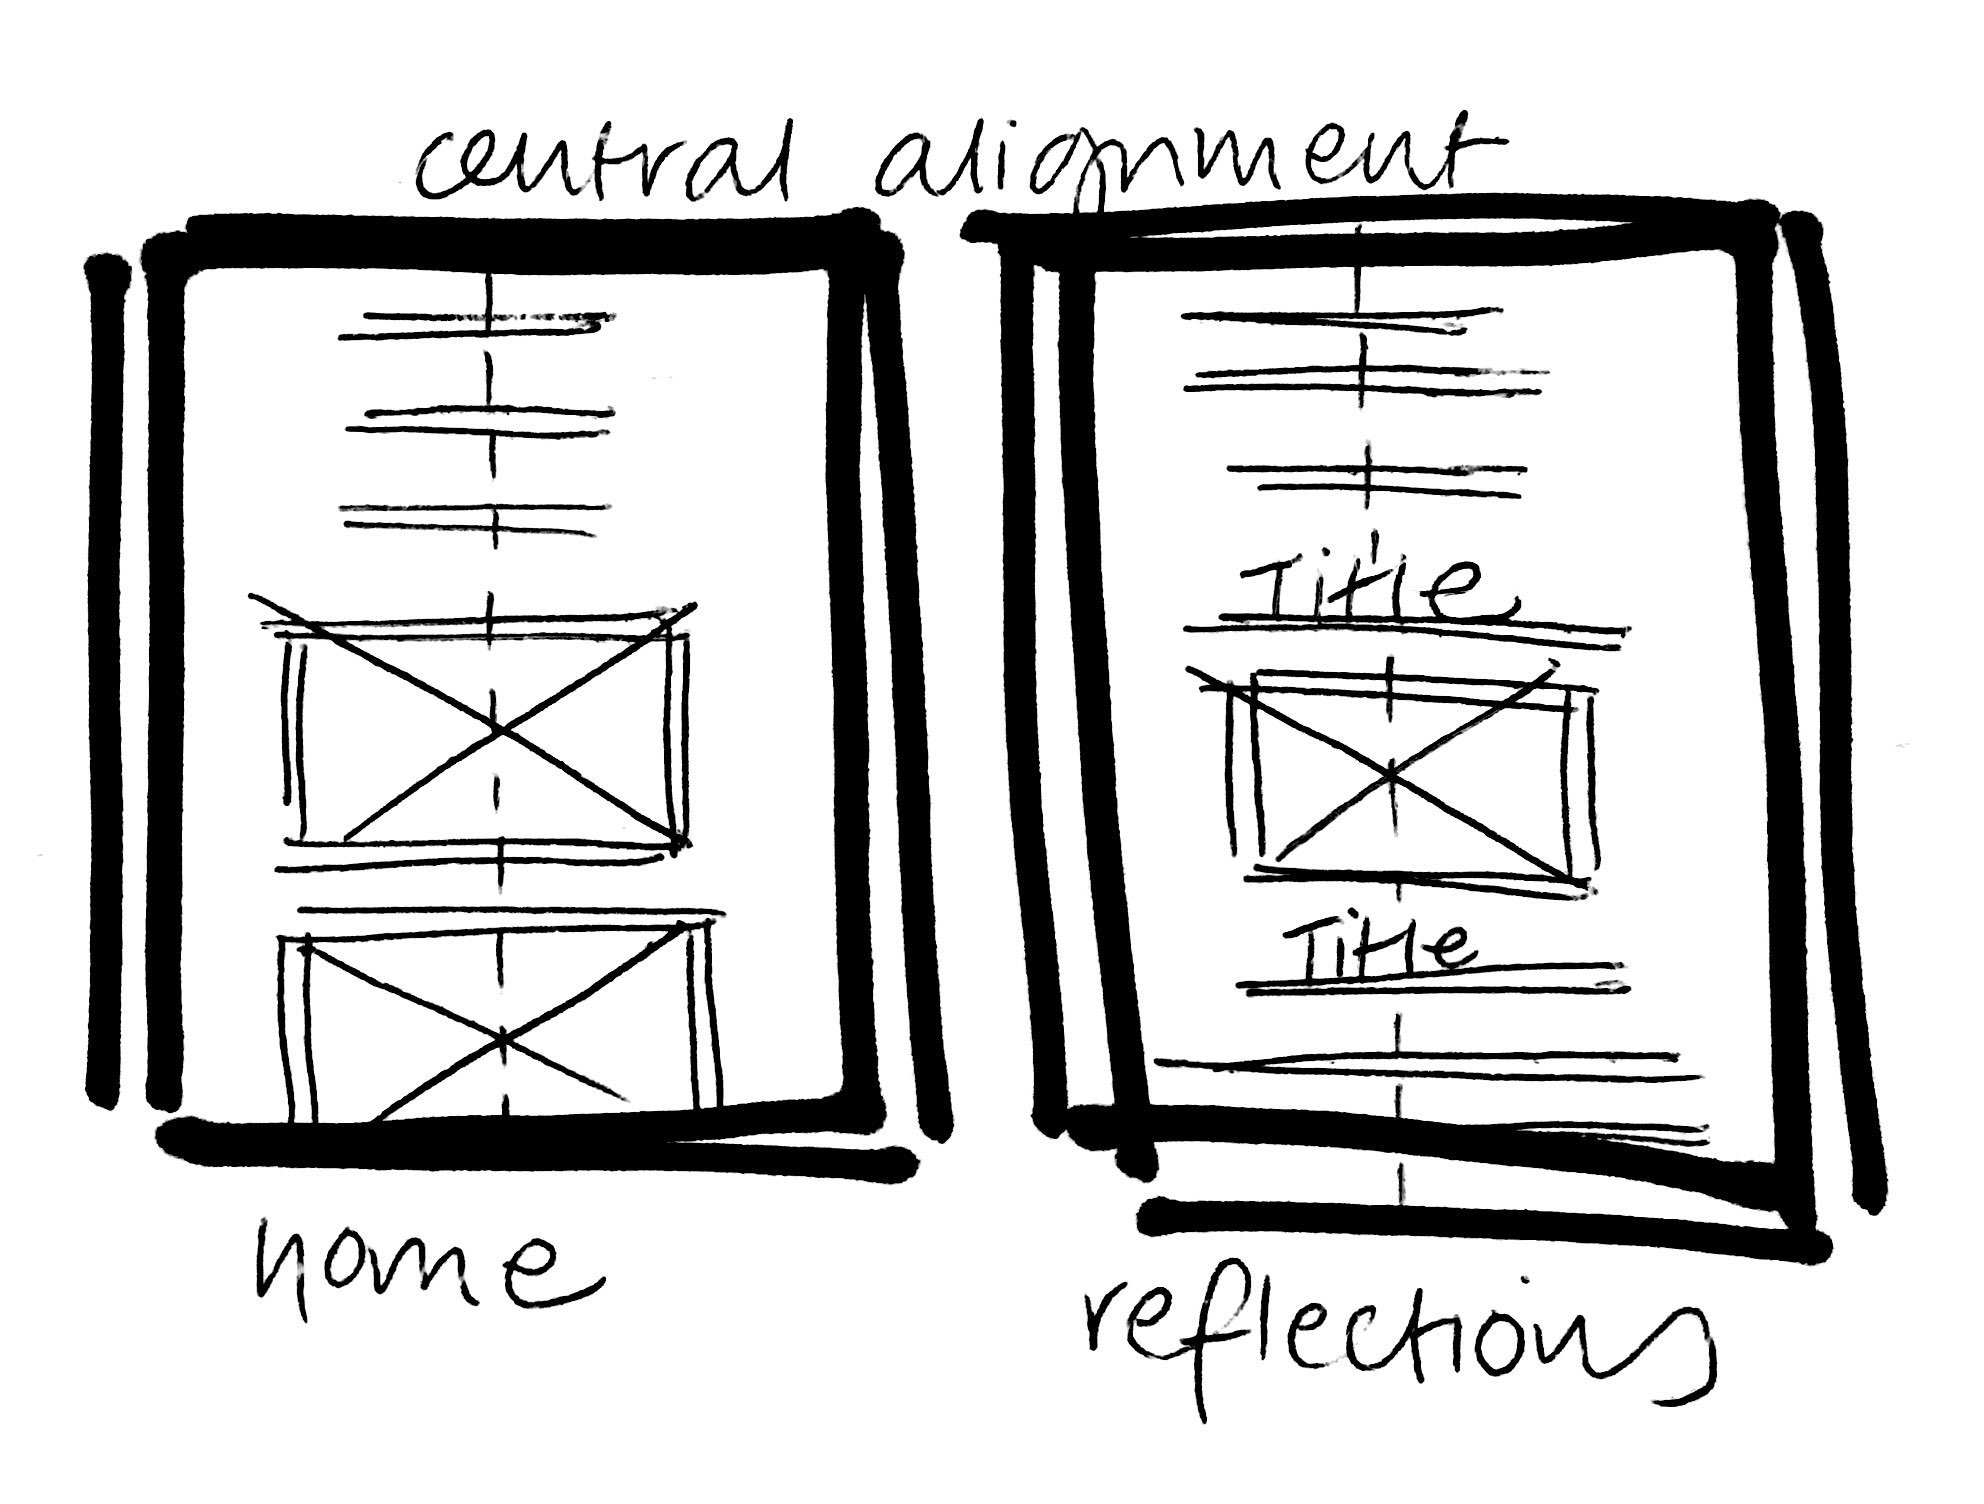 central alignment
Title
Title
home
reflections